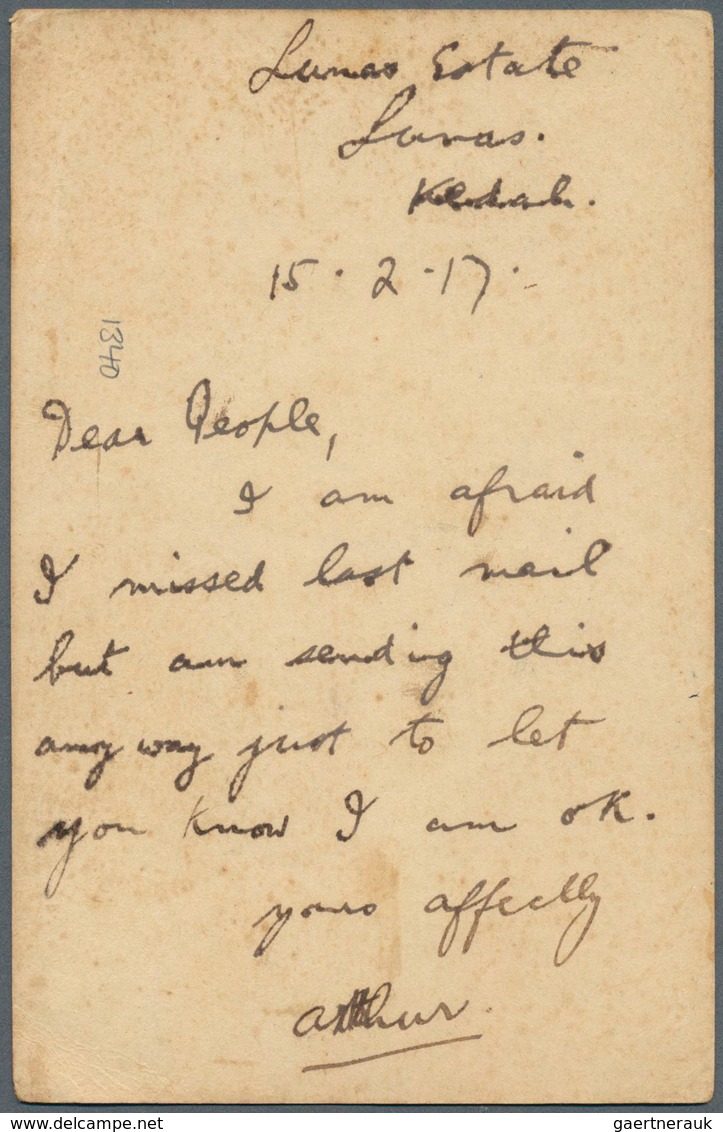 Lunas Estate
Lunas.
Kedah.
15.2.17.
1340
Dear People,
I am afraid
I missed last mail
but am sending this
any way just to let
you know I am ok.
yours affectly
Arthur.
delcampe.net
gaertnerauk